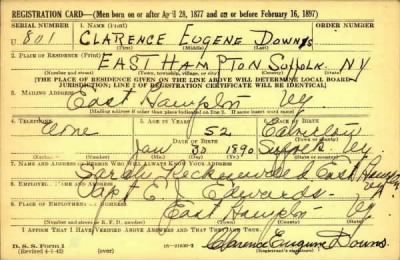 REGISTRATION CARD—(Men born on or after April 28, 1877 and on or before February 16, 1897)
SERIAL NUMBER 1. NAME (Print) ORDER NUMBER
U 801 CLARENCE EUGENE DOWNS
(First) (Middle) (Last)
2. PLACE OF RESIDENCE (Print)
EAST HAMPTON SUFFOLK NY
(Number and street) (Town, township, village, or city) (County) (State)
[THE PLACE OF RESIDENCE GIVEN ON THE LINE ABOVE WILL DETERMINE LOCAL BOARD
JURISDICTION; LINE 2 OF REGISTRATION CERTIFICATE WILL BE IDENTICAL]
3. MAILING ADDRESS
East Hampton NY
[Mailing address if other than place indicated on line 2. If same insert word same]
4. TELEPHONE 5. AGE IN YEARS 6. PLACE OF BIRTH
None 52
DATE OF BIRTH
Jan 30 1890 Suffolk NY
7. NAME AND ADDRESS OF PERSON WHO WILL ALWAYS KNOW YOUR ADDRESS
Sarah East Hampton
8. EMPLOYER'S NAME AND ADDRESS
Capt E. J. Edwards
9. PLACE OF EMPLOYMENT OR BUSINESS
East Hampton NY
(Number and street or R. F. D. number) (Town) (County) (State)
I AFFIRM THAT I HAVE VERIFIED ABOVE ANSWERS AND THAT THEY ARE TRUE.
D. S. S. Form 1
(Revised 4-1-42) Clarence Eugene Downs
(Registrant's signature)